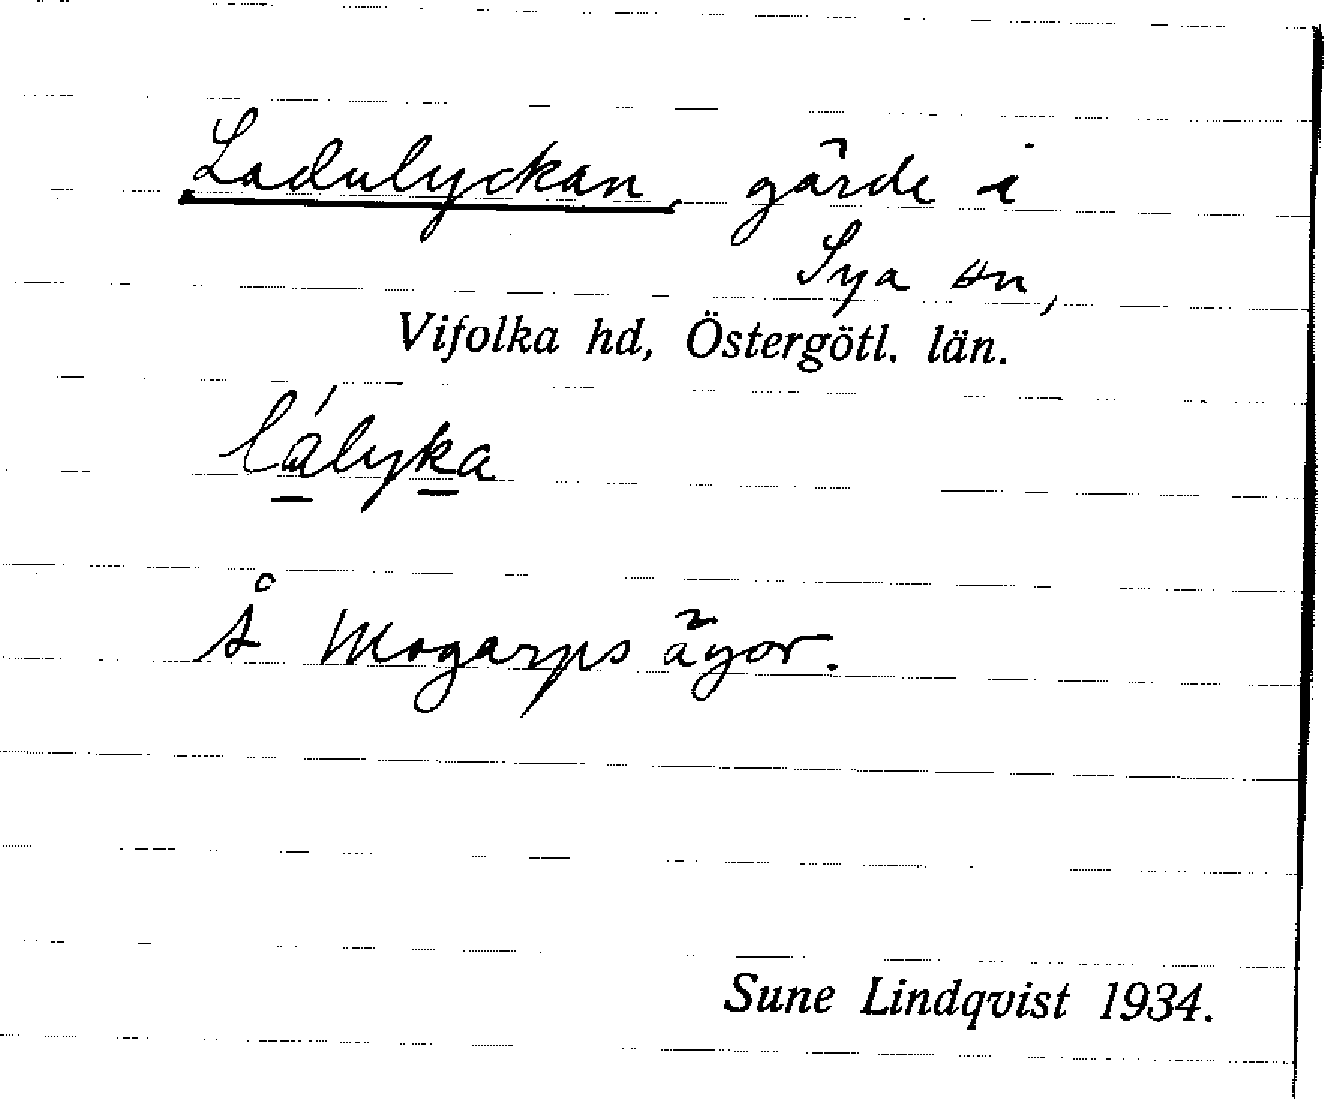 Ladulyckan, gärde i
Sya sn,
Vifolka hd, Östergötl. län.
lályka
Å Mogarps ägor.
Sune Lindqvist 1934.